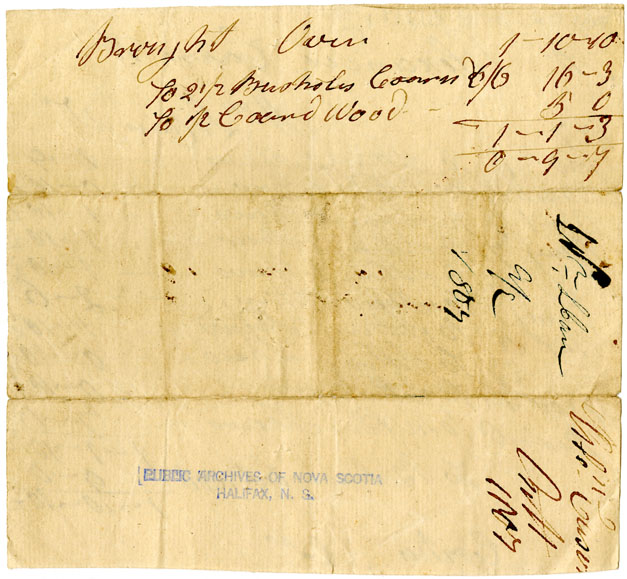 Brought Over 1-10-10
To 2 1/2 Bushels Coarn 6/6 16-3
To 1/2 Coard Wood - 5 0
1-1-3
0-9-7
a/c
1807
1807
PUBLIC ARCHIVES OF NOVA SCOTIA
HALIFAX, N. S.